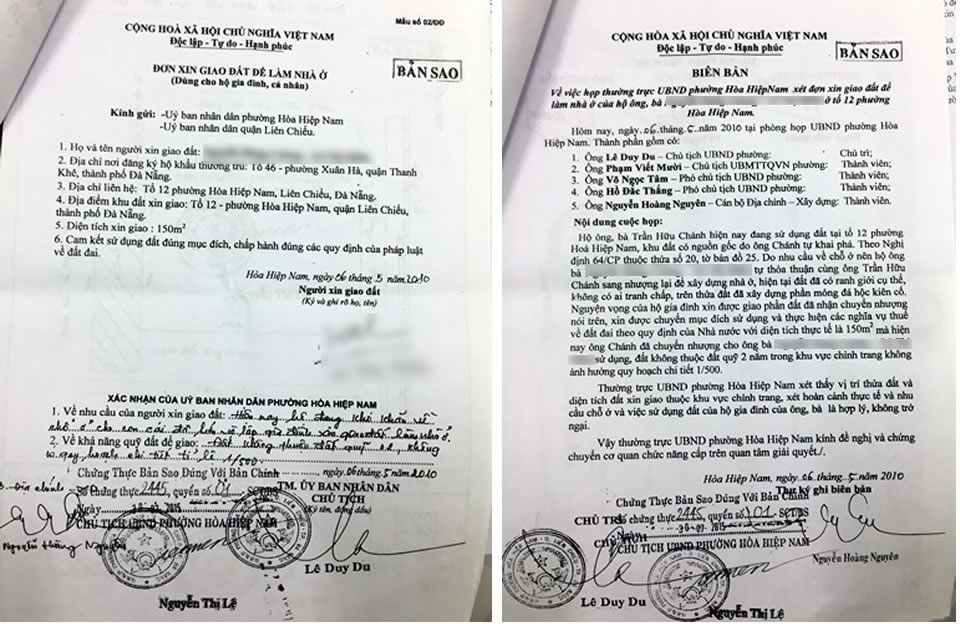 Mẫu số 02/ĐĐ
CỘNG HOÀ XÃ HỘI CHỦ NGHĨA VIỆT NAM
Độc lập - Tự do - Hạnh phúc
BẢN SAO
ĐƠN XIN GIAO ĐẤT ĐỂ LÀM NHÀ Ở
(Dùng cho hộ gia đình, cá nhân)
Kính gửi: -Uỷ ban nhân dân phường Hòa Hiệp Nam
-Uỷ ban nhân dân quận Liên Chiểu.
1. Họ và tên người xin giao đất:
2. Địa chỉ nơi đăng ký hộ khẩu thường trú: Tổ 46 - phường Xuân Hà, quận Thanh
Khê, thành phố Đà Nẵng.
3. Địa chỉ liên hệ: Tổ 12 phường Hòa Hiệp Nam, Liên Chiểu, Đà Nẵng.
4. Địa điểm khu đất xin giao: Tổ 12 - phường Hòa Hiệp Nam, quận Liên Chiểu,
thành phố Đà Nẵng.
5. Diện tích xin giao : 150m²
6. Cam kết sử dụng đất đúng mục đích, chấp hành đúng các quy định của pháp luật
về đất đai.
Hòa Hiệp Nam, ngày 06 tháng 5 năm 2010
Người xin giao đất
(Ký và ghi rõ họ, tên)
XÁC NHẬN CỦA UỶ BAN NHÂN DÂN PHƯỜNG HÒA HIỆP NAM
1. Về nhu cầu của người xin giao đất: Hiện nay hộ đang khó khăn về
chỗ ở cho con cái
2. Về khả năng quỹ đất để giao: Đất không thuộc đất quỹ 2%, không
quy hoạch chi tiết tỉ lệ 1/500.
Chứng Thực Bản Sao Đúng Với Bản Chính
, ngày 06 tháng 5 năm 2010
Địa chính
TM. ỦY BAN NHÂN DÂN
Số chứng thực 2445, quyển số 01 - SCT/BS
CHỦ TỊCH
Ngày 30-07-2015
(Ký tên, đóng dấu)
CHỦ TỊCH UBND PHƯỜNG HÒA HIỆP NAM
Nguyễn Hoàng Nguyên
Lê Duy Du
Nguyễn Thị Lệ
CỘNG HÒA XÃ HỘI CHỦ NGHĨA VIỆT NAM
Độc lập - Tự do - Hạnh phúc
BẢN SAO
BIÊN BẢN
Về việc họp thường trực UBND phường Hòa HiệpNam xét đơn xin giao đất để
làm nhà ở của hộ ông, bà ở tổ 12 phường
Hòa Hiệp Nam.
Hôm nay, ngày 06 tháng 5 năm 2010 tại phòng họp UBND phường Hòa
Hiệp Nam. Thành phần gồm có:
1. Ông Lê Duy Du – Chủ tịch UBND phường: Chủ trì;
2. Ông Phạm Viết Mười - Chủ tịch UBMTTQVN phường: Thành viên;
3. Ông Võ Ngọc Tâm – Phó chủ tịch UBND phường: Thành viên;
4. Ông Hồ Đắc Thắng – Phó chủ tịch UBND phường: Thành viên;
5. Ông Nguyễn Hoàng Nguyên – Cán bộ Địa chính – Xây dựng: Thành viên.
Nội dung cuộc họp:
Hộ ông, bà Trần Hữu Chánh hiện nay đang sử dụng đất tại tổ 12 phường
Hoà Hiệp Nam, khu đất có nguồn gốc do ông Chánh tự khai phá. Theo Nghị
định 64/CP thuộc thửa số 20, tờ bản đồ 25. Do nhu cầu về chỗ ở nên hộ ông
bà tự thỏa thuận cùng ông Trần Hữu
Chánh sang nhượng lại để xây dựng nhà ở, hiện tại đất đã có ranh giới cụ thể,
không có ai tranh chấp, trên thửa đất đã xây dựng phần móng đá hộc kiên cố.
Nguyện vọng của hộ gia đình xin được giao phần đất đã nhận chuyển nhượng
nói trên, xin được chuyển mục đích sử dụng và thực hiện các nghĩa vụ thuế
về đất đai theo quy định của Nhà nước với diện tích thực tế là 150m² mà hiện
nay ông Chánh đã chuyển nhượng cho ông bà
sử dụng, đất không thuộc đất quỹ 2 năm trong khu vực chỉnh trang không
ảnh hưởng quy hoạch chi tiết 1/500.
Thường trực UBND phường Hòa Hiệp Nam xét thấy vị trí thửa đất và
diện tích đất xin giao thuộc khu vực chỉnh trang, xét hoàn cảnh thực tế và nhu
cầu chỗ ở và việc sử dụng đất của hộ gia đình của ông, bà là hợp lý, không trở
ngại.
Vậy thường trực UBND phường Hòa Hiệp Nam kính đề nghị và chứng
chuyển cơ quan chức năng cấp trên quan tâm giải quyết./.
Hòa Hiệp Nam, ngày 06 tháng 5 năm 2010
Thư ký ghi biên bản
Chứng Thực Bản Sao Đúng Với Bản Chính
CHỦ TRÌ
Số chứng thực 2445, quyển số 01 - SCT/BS
30-07-2015
CHỦ TỊCH
CHỦ TỊCH UBND PHƯỜNG HÒA HIỆP NAM
Nguyễn Hoàng Nguyên
Lê Duy Du
Nguyễn Thị Lệ